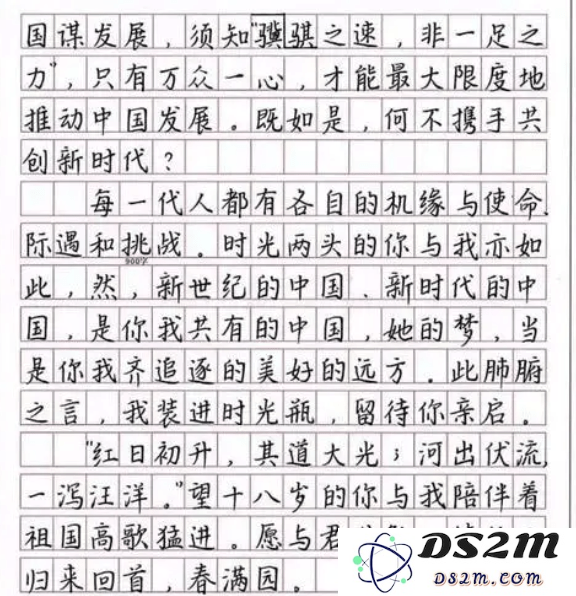 国谋发展，须知"骥骐之速，非一足之
力"，只有万众一心，才能最大限度地
推动中国发展。既如是，何不携手共
创新时代？
每一代人都有各自的机缘与使命、
际遇和挑战。时光两头的你与我亦如
900字
此，然，新世纪的中国、新时代的中
国，是你我共有的中国，她的梦，当
是你我齐追逐的美好的远方。此肺腑
之言，我装进时光瓶，留待你亲启。
"红日初升，其道大光；河出伏流，
一泻汪洋。"望十八岁的你与我陪伴着
祖国高歌猛进。愿与君
归来回首，春满园。
DS2m
DS2m.com